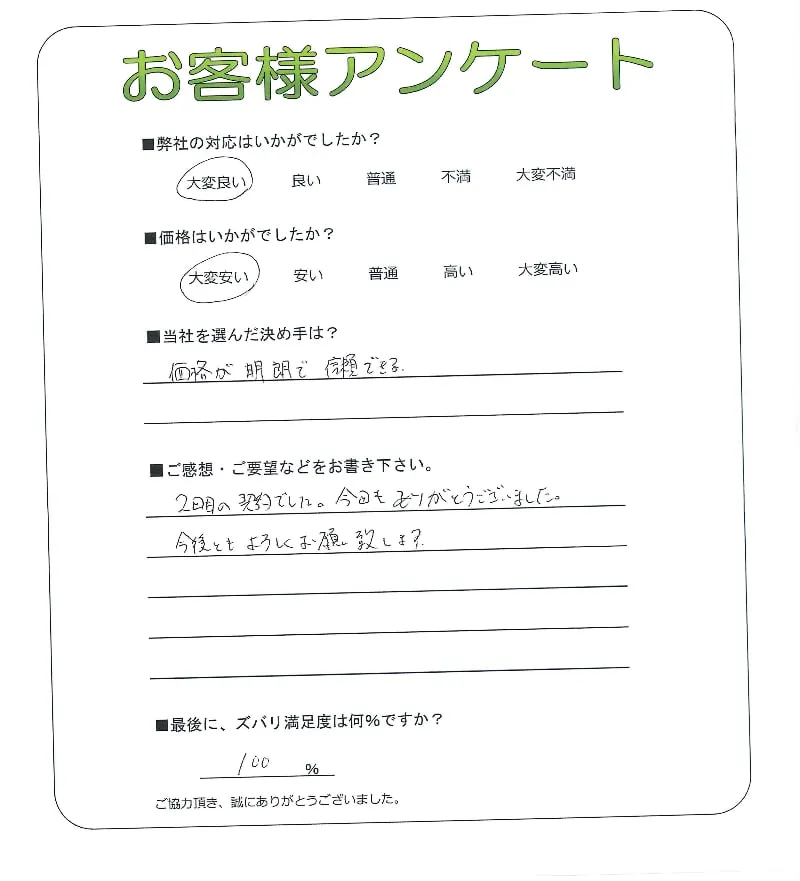 お客様アンケート
■弊社の対応はいかがでしたか？
大変良い 良い 普通 不満 大変不満
■価格はいかがでしたか？
大変安い 安い 普通 高い 大変高い
■当社を選んだ決め手は？
価格が明朗で信頼できる。
■ご感想・ご要望などをお書き下さい。
2回目の契約でした。今回もありがとうございました。
今後ともよろしくお願い致します。
■最後に、ズバリ満足度は何%ですか？
100 %
ご協力頂き、誠にありがとうございました。